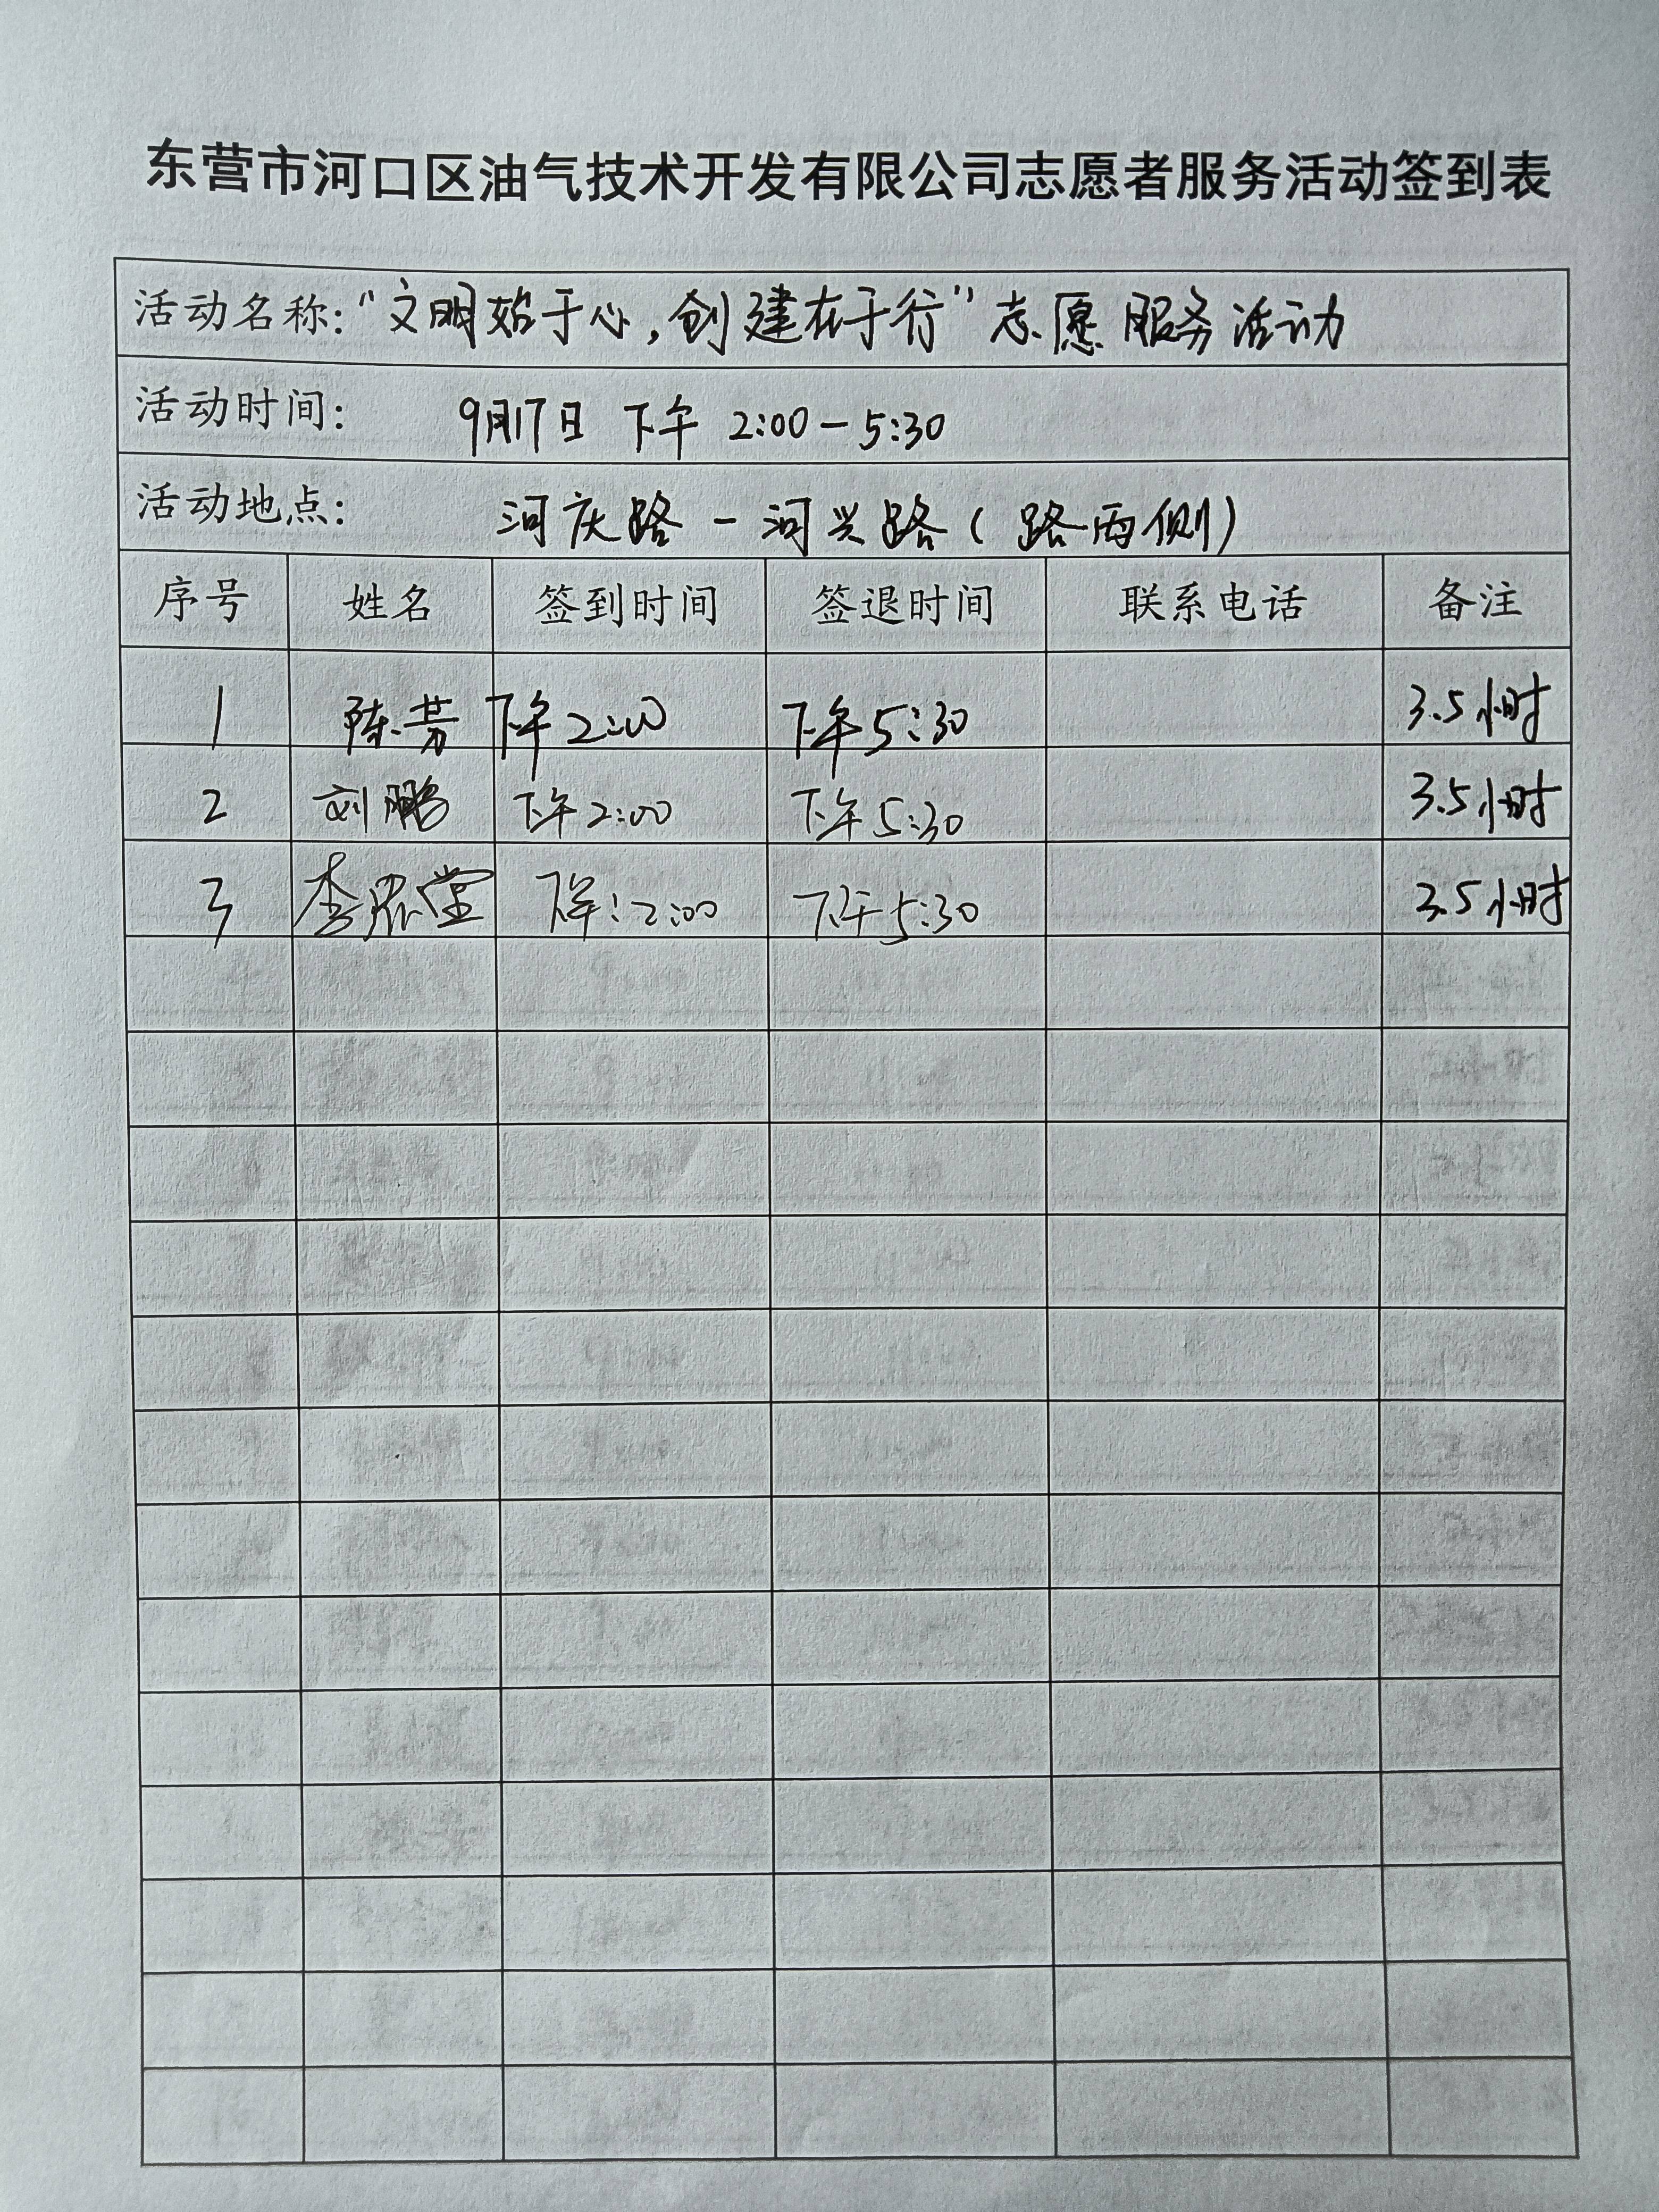 东营市河口区油气技术开发有限公司志愿者服务活动签到表
活动名称："文明始于心，创建在于行"志愿服务活动
活动时间： 9月17日 下午 2:00-5:30
活动地点： 河庆路-河兴路(路两侧)
序号 姓名 签到时间 签退时间 联系电话 备注
1 陈芳 下午2:00 下午5:30 3.5小时
2 刘鹏 下午2:00 下午5:30 3.5小时
3 李 堂 下午:2:00 下午5:30 3.5小时